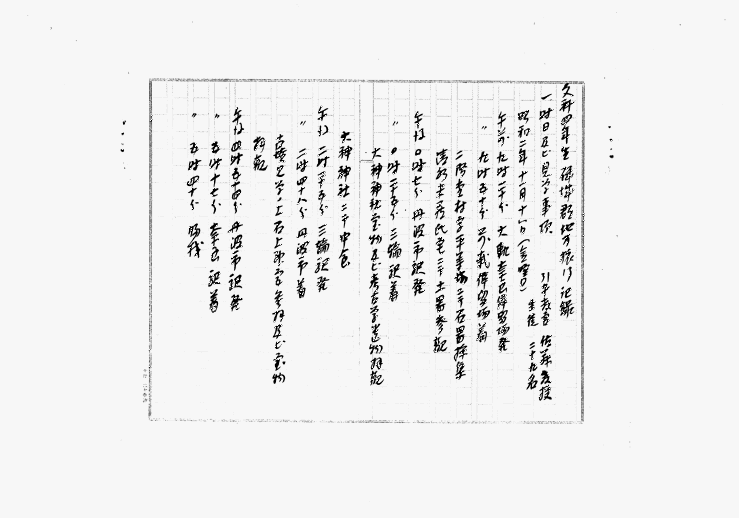 文科四年生磯城郡地方旅行記録
一、時日及ビ見学事項 引率教官 佐藤教授
生徒 二十九名
昭和二年十一月十六日(水曜日)
午前九時二十分 大軌奈良停留場発
〃 九時五十分 停留場着
二階堂村字平等坊ニテ石器採集
氏宅ニテ土器参観
午后〇時七分 丹波市駅発
〃 〇時二十五分 三輪駅着
大神神社宝物及ビ考古学遺物拝観
大神神社ニテ中食
午后 二時三十五分 三輪駅発
〃 二時四十八分 丹波市着
古墳見学ノ上石上神宮参拝及ビ宝物
拝観
午后 四時五十四分 丹波市駅発
〃 五時十七分 奈良駅着
〃 五時四十分 帰校